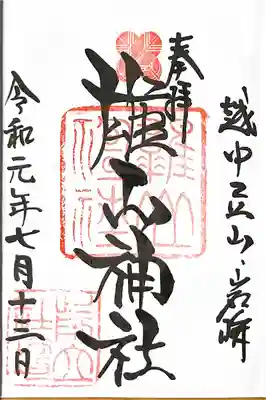 奉拝
越中立山・岩峅
雄山神社
令和元年七月十三日